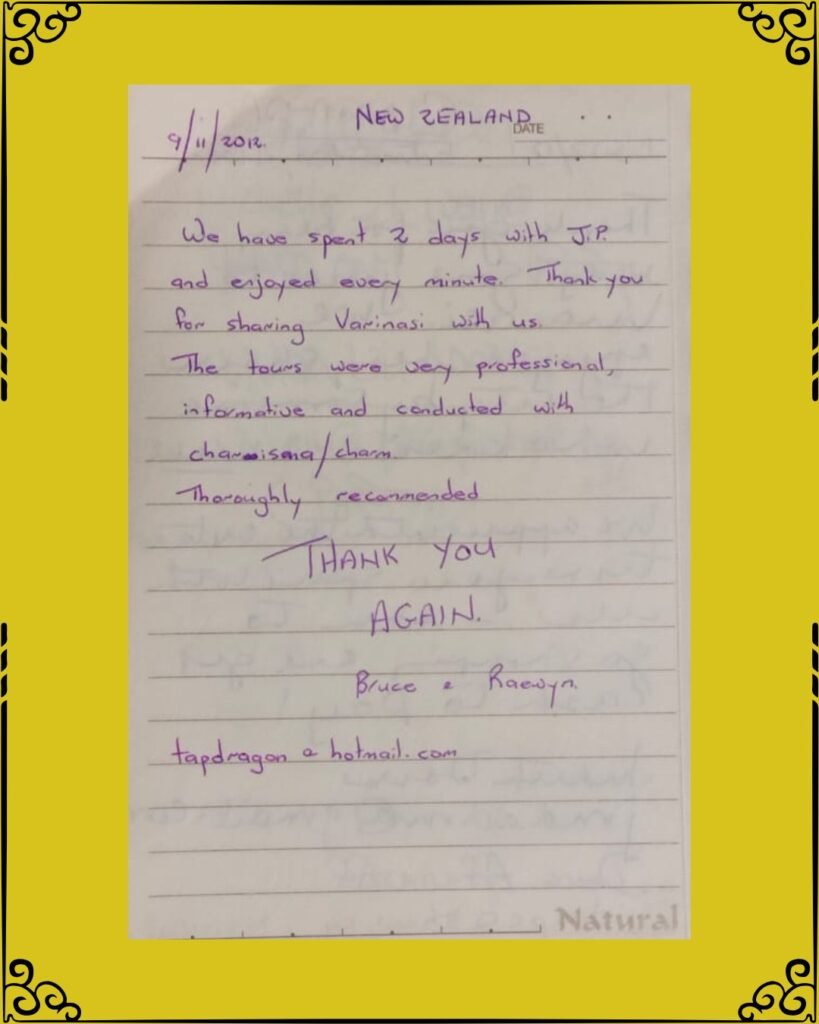 NEW ZEALAND
DATE
9/11/2012.
We have spent 2 days with J.P.
and enjoyed every minute. Thank you
for sharing Varinasi with us.
The tours were very professional,
informative and conducted with
charisma/charm.
Thoroughly recommended
THANK YOU
AGAIN.
Bruce & Raewyn.
tapdragon@hotmail.com
Natural